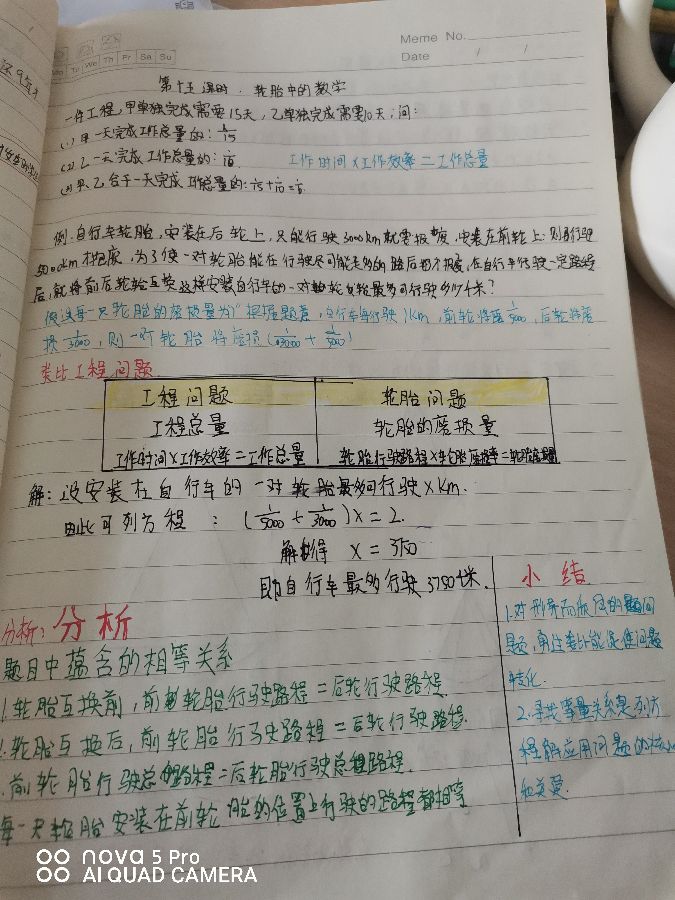 Meme No.
Mo Tu We Th Fr Sa Su
Date / /
第十五课时. 轮胎中的数学
一件工程,甲单独完成需要15天,乙单独完成需要10天,问:
(1) 甲一天完成工作总量的: 1/15
(2) 乙一天完成工作总量的: 1/10 工作时间×工作效率=工作总量
(3) 甲.乙合干一天完成工作总量的: 1/15+1/10=1/6
例.自行车轮胎,安装在后轮上,只能行驶3000km就要报废,安装在前轮上.则行驶
5000km才报废,为了使一对轮胎能在行驶尽可能多的路后才报废,在自行车行驶一定路程
后,就将前后轮轮胎互换,这样安装自行车的一对轮胎最多可行驶多少千米?
假设每一只轮胎的磨损量为1"根据题意,自行车每行驶1Km,前轮将磨1/5000,后轮将磨
损1/3000,则一对轮胎将磨损(1/3000+1/5000)
类比工程问题.
工程问题 轮胎问题
工程总量 轮胎的磨损量
工作时间×工作效率=工作总量 轮胎行驶路程×轮胎磨损率=轮胎磨损量
解:设安装在自行车的一对轮胎最多可行驶×Km.
由此可列方程:(1/5000+1/3000)x=2.
解得 x=3750
即自行车最多行驶3750千米.
分析:分析
题目中蕴含的相等关系
1.轮胎互换前,前轮胎行驶路程=后轮行驶路程.
轮胎互换后,前轮胎行驶路程=后轮行驶路程.
前轮胎行驶总路程=后轮胎行驶总路程.
每一只轮胎安装在前轮胎的位置上行驶的路程都相等
小结
1.对形异而质同的问
题,用类比能促使问题
转化.
2.寻找等量关系是列方
程解应用问题的核心
和关键.
nova 5 Pro
AI QUAD CAMERA